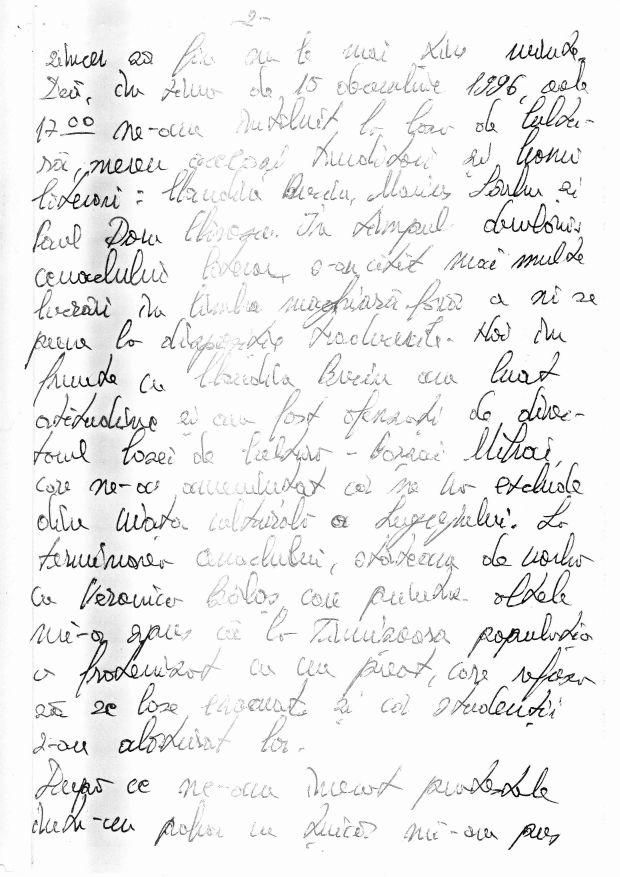 -2-
să fiu cu le mai ține minte.
Deci, în ziua de 15 decembrie 1996, orele
17 00 ne-am întâlnit la Casa de Cultu-
ră, mereu aceeași și
literari: Claudia Marius și
Paul Dom În timpul
cenaclului literar, s-au citit mai multe
lucrări în limba maghiară fără a ni se
pune la dispoziție traducerile. Noi în
frunte cu Claudia am luat
atitudine și am fost ofensați de direc-
torul Casei de Cultură - Mihai,
care ne-a amenințat că ne va exclude
din viața culturală a Lugojului. La
terminarea cenaclului, stăteam de vorbă
cu Veronica Balaș, care printre altele
mi-a spus că la Timișoara populația
a fraternizat cu un preot, care refuza
să se lase evacuat și că studenții
s-au alăturat lor.
După ce ne-am
într-un pahar cu mi-am pus